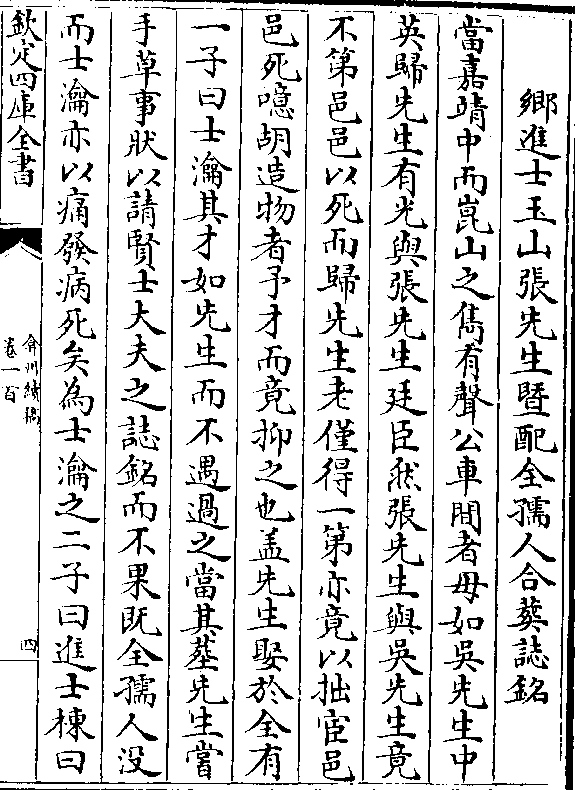 鄉進士玉山張先生暨配全孺人合葬誌銘
當嘉靖中而崑山之儁有聲公車間者毋如吳先生中
英歸先生有光與張先生廷臣然張先生與吳先生竟
不第邑邑以死而歸先生老僅得一第亦竟以拙宦邑
邑死噫胡造物者予才而竟抑之也盖先生娶於全有
一子曰士瀹其才如先生而不遇過之當其塟先生嘗
手草事狀以請賢士大夫之誌銘而不果既全孺人没
而士瀹亦以痛發病死矣為士瀹之二子曰進士棟曰
欽定四庫全書
弇州續稿
卷一百
四